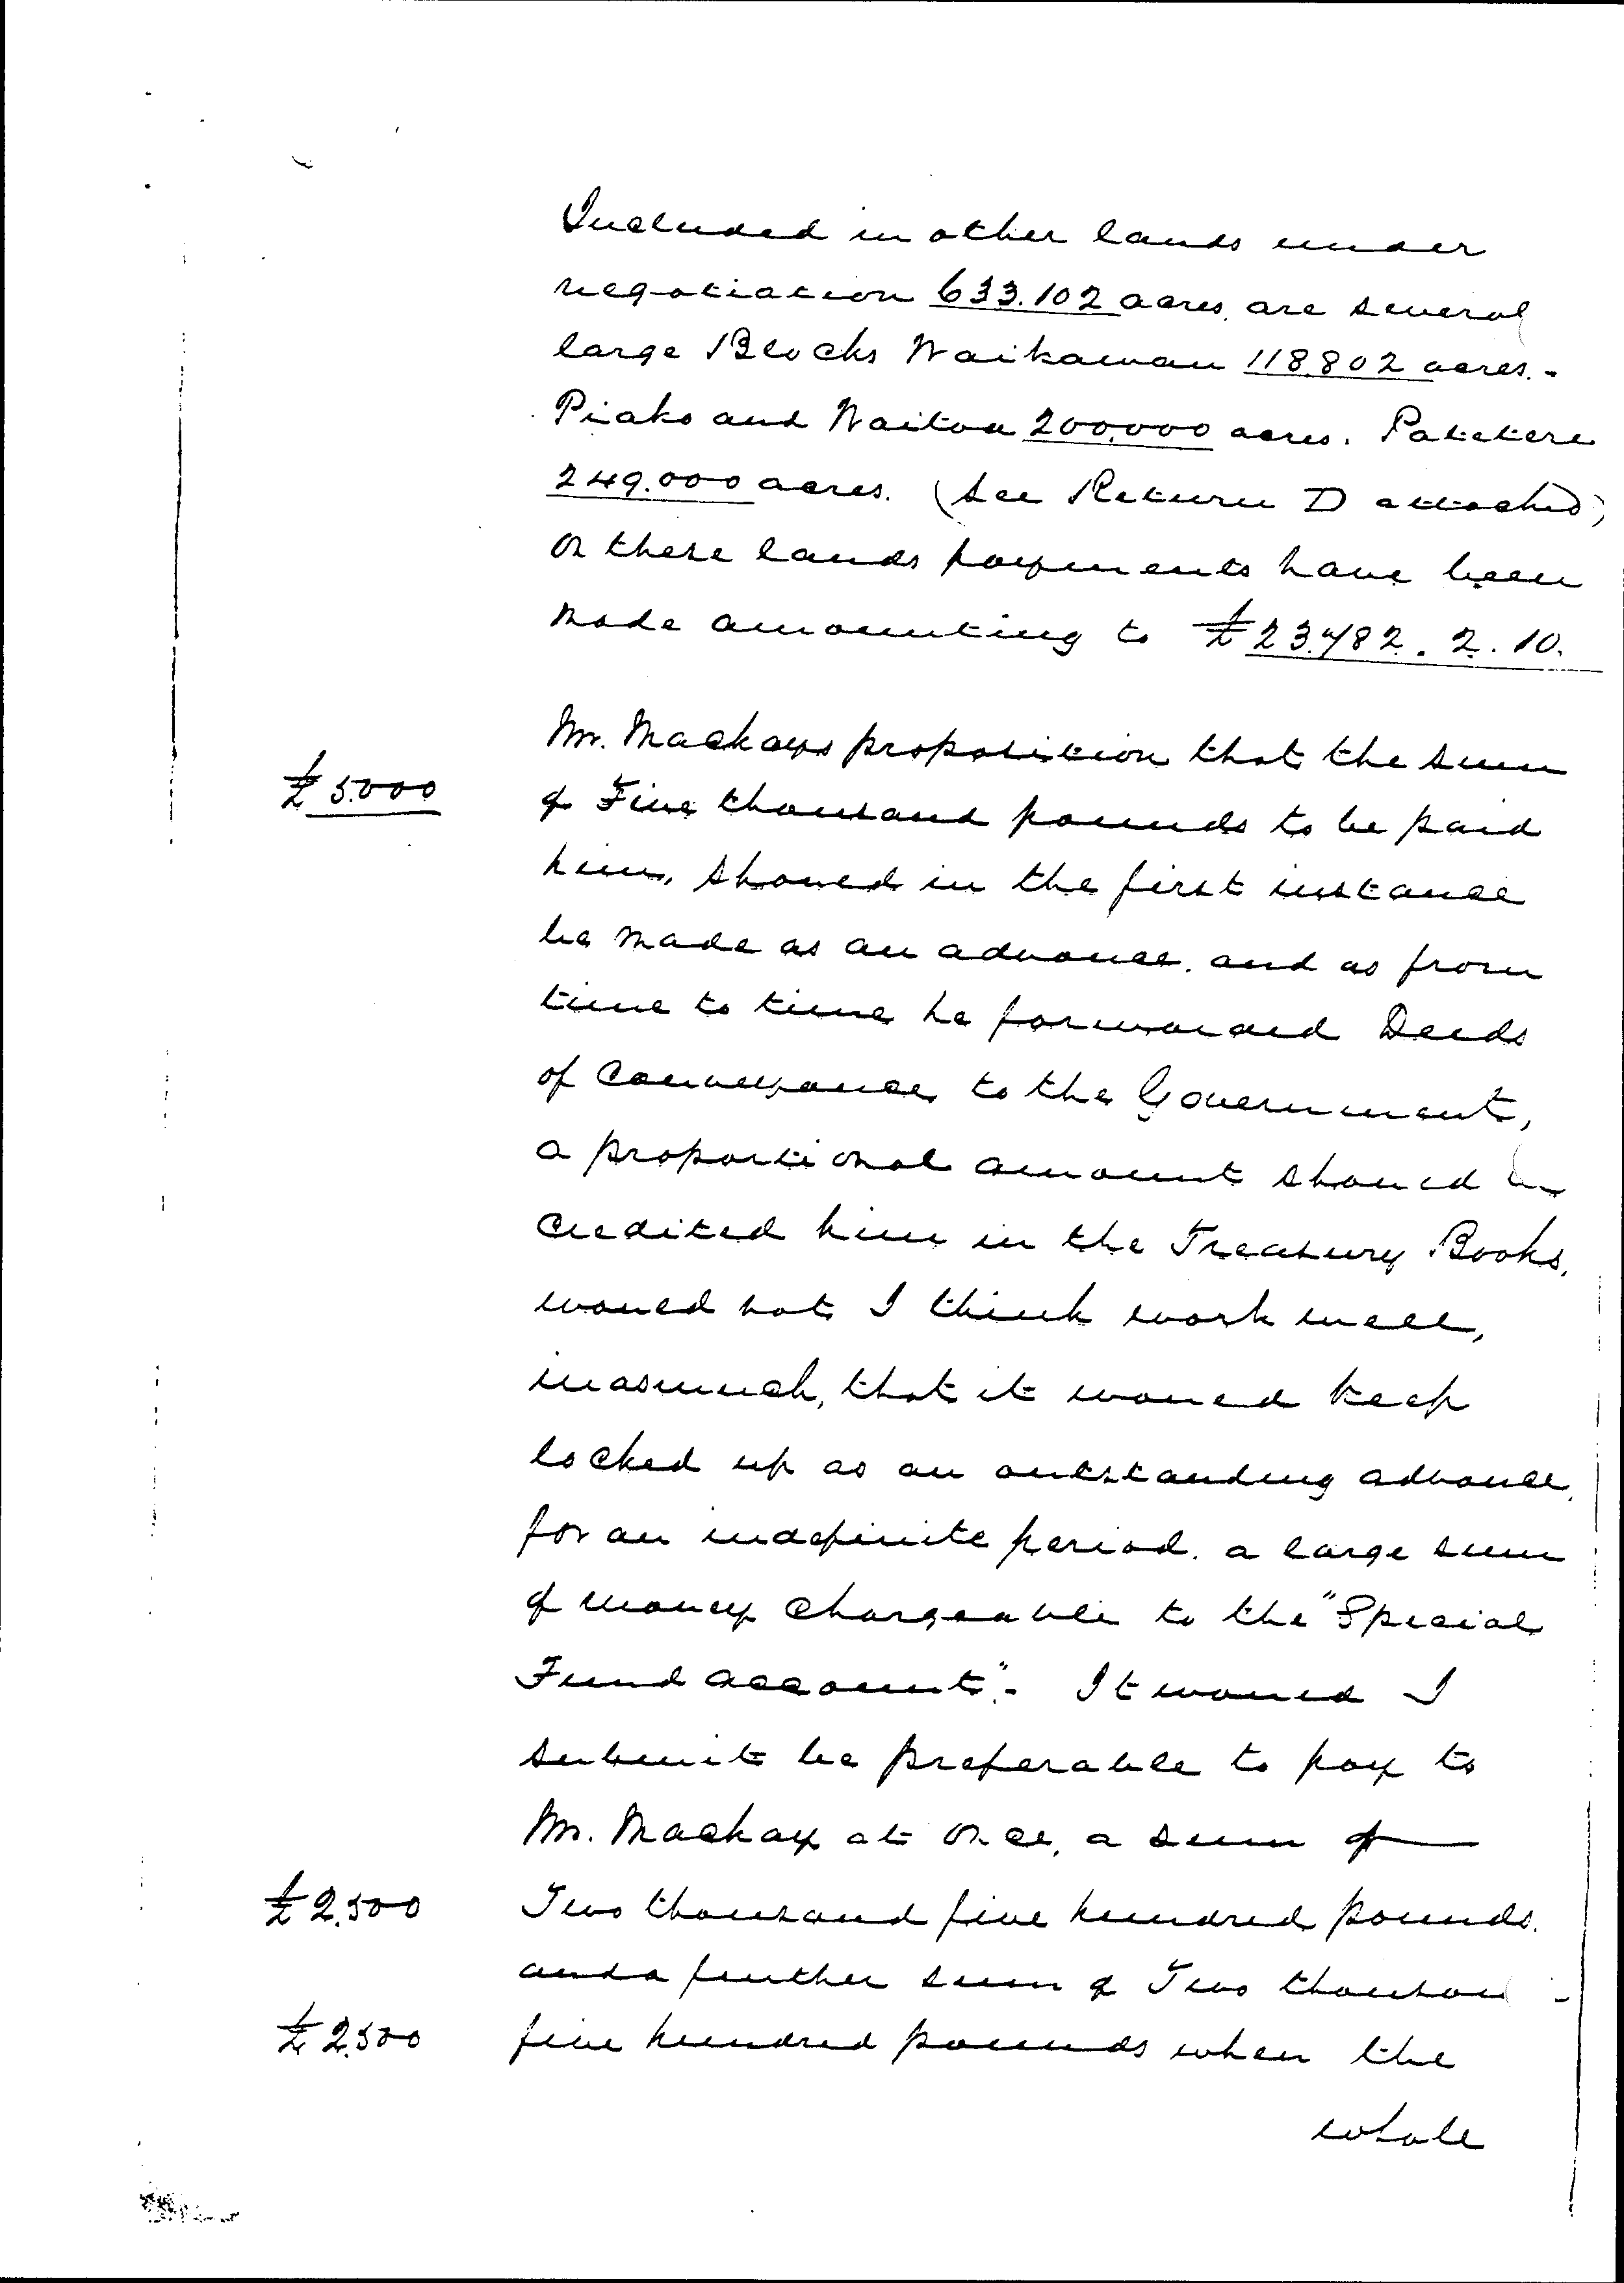 Included in other lands under
negotiation 633.102 acres, are several
large Blocks Waikawau 118.802 acres.-
Piako and Waitoa 200.000 acres. Patetere
249.000 acres. (See Return D attached)
On these lands payments have been
made amounting to £23.482. 2. 10.
Mr. Mackays proposition that the sum
£5.000
of Five thousand pounds to be paid
him, should in the first instance
be made as an advance, and as from
time to time he forwarded Deeds
of Conveyance to the Government,
a proportional amount should be
credited him in the Treasury Books,
would not I think work well,
inasmuch, that it would keep
locked up as an outstanding advance,
for an indefinite period, a large sum
of money chargeable to the "Special
Fund account".- It would I
submit be preferable to pay to
Mr. Mackay at once, a sum of
£2.500
Two thousand five hundred pounds.
and a further sum of Two thousand
£2.500
five hundred pounds when the
whole